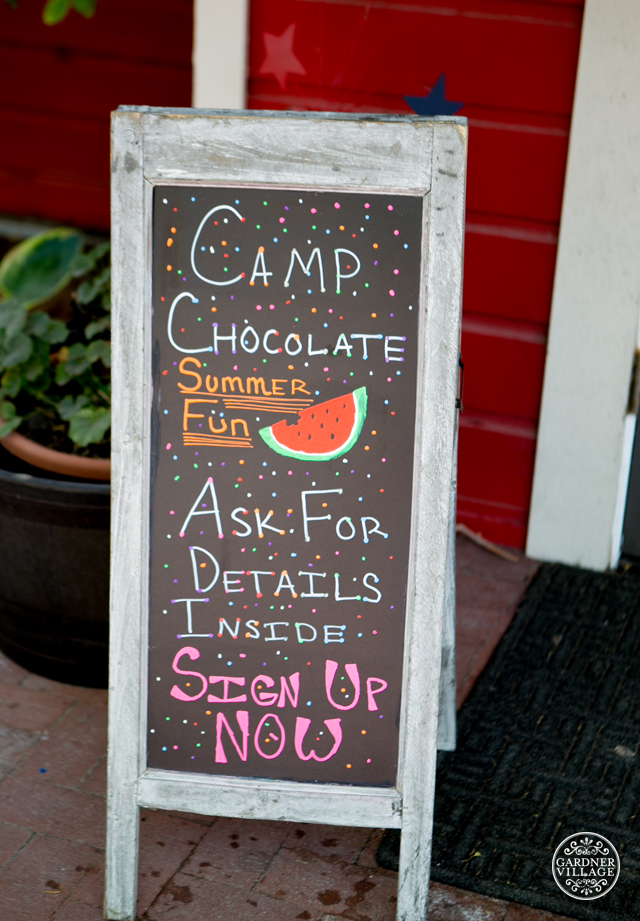 CAMP
CHOCOLATE
SUMMER
FUN
ASK FOR
DETAILS
INSIDE
SIGN UP
NOW
GARDNER
VILLAGE